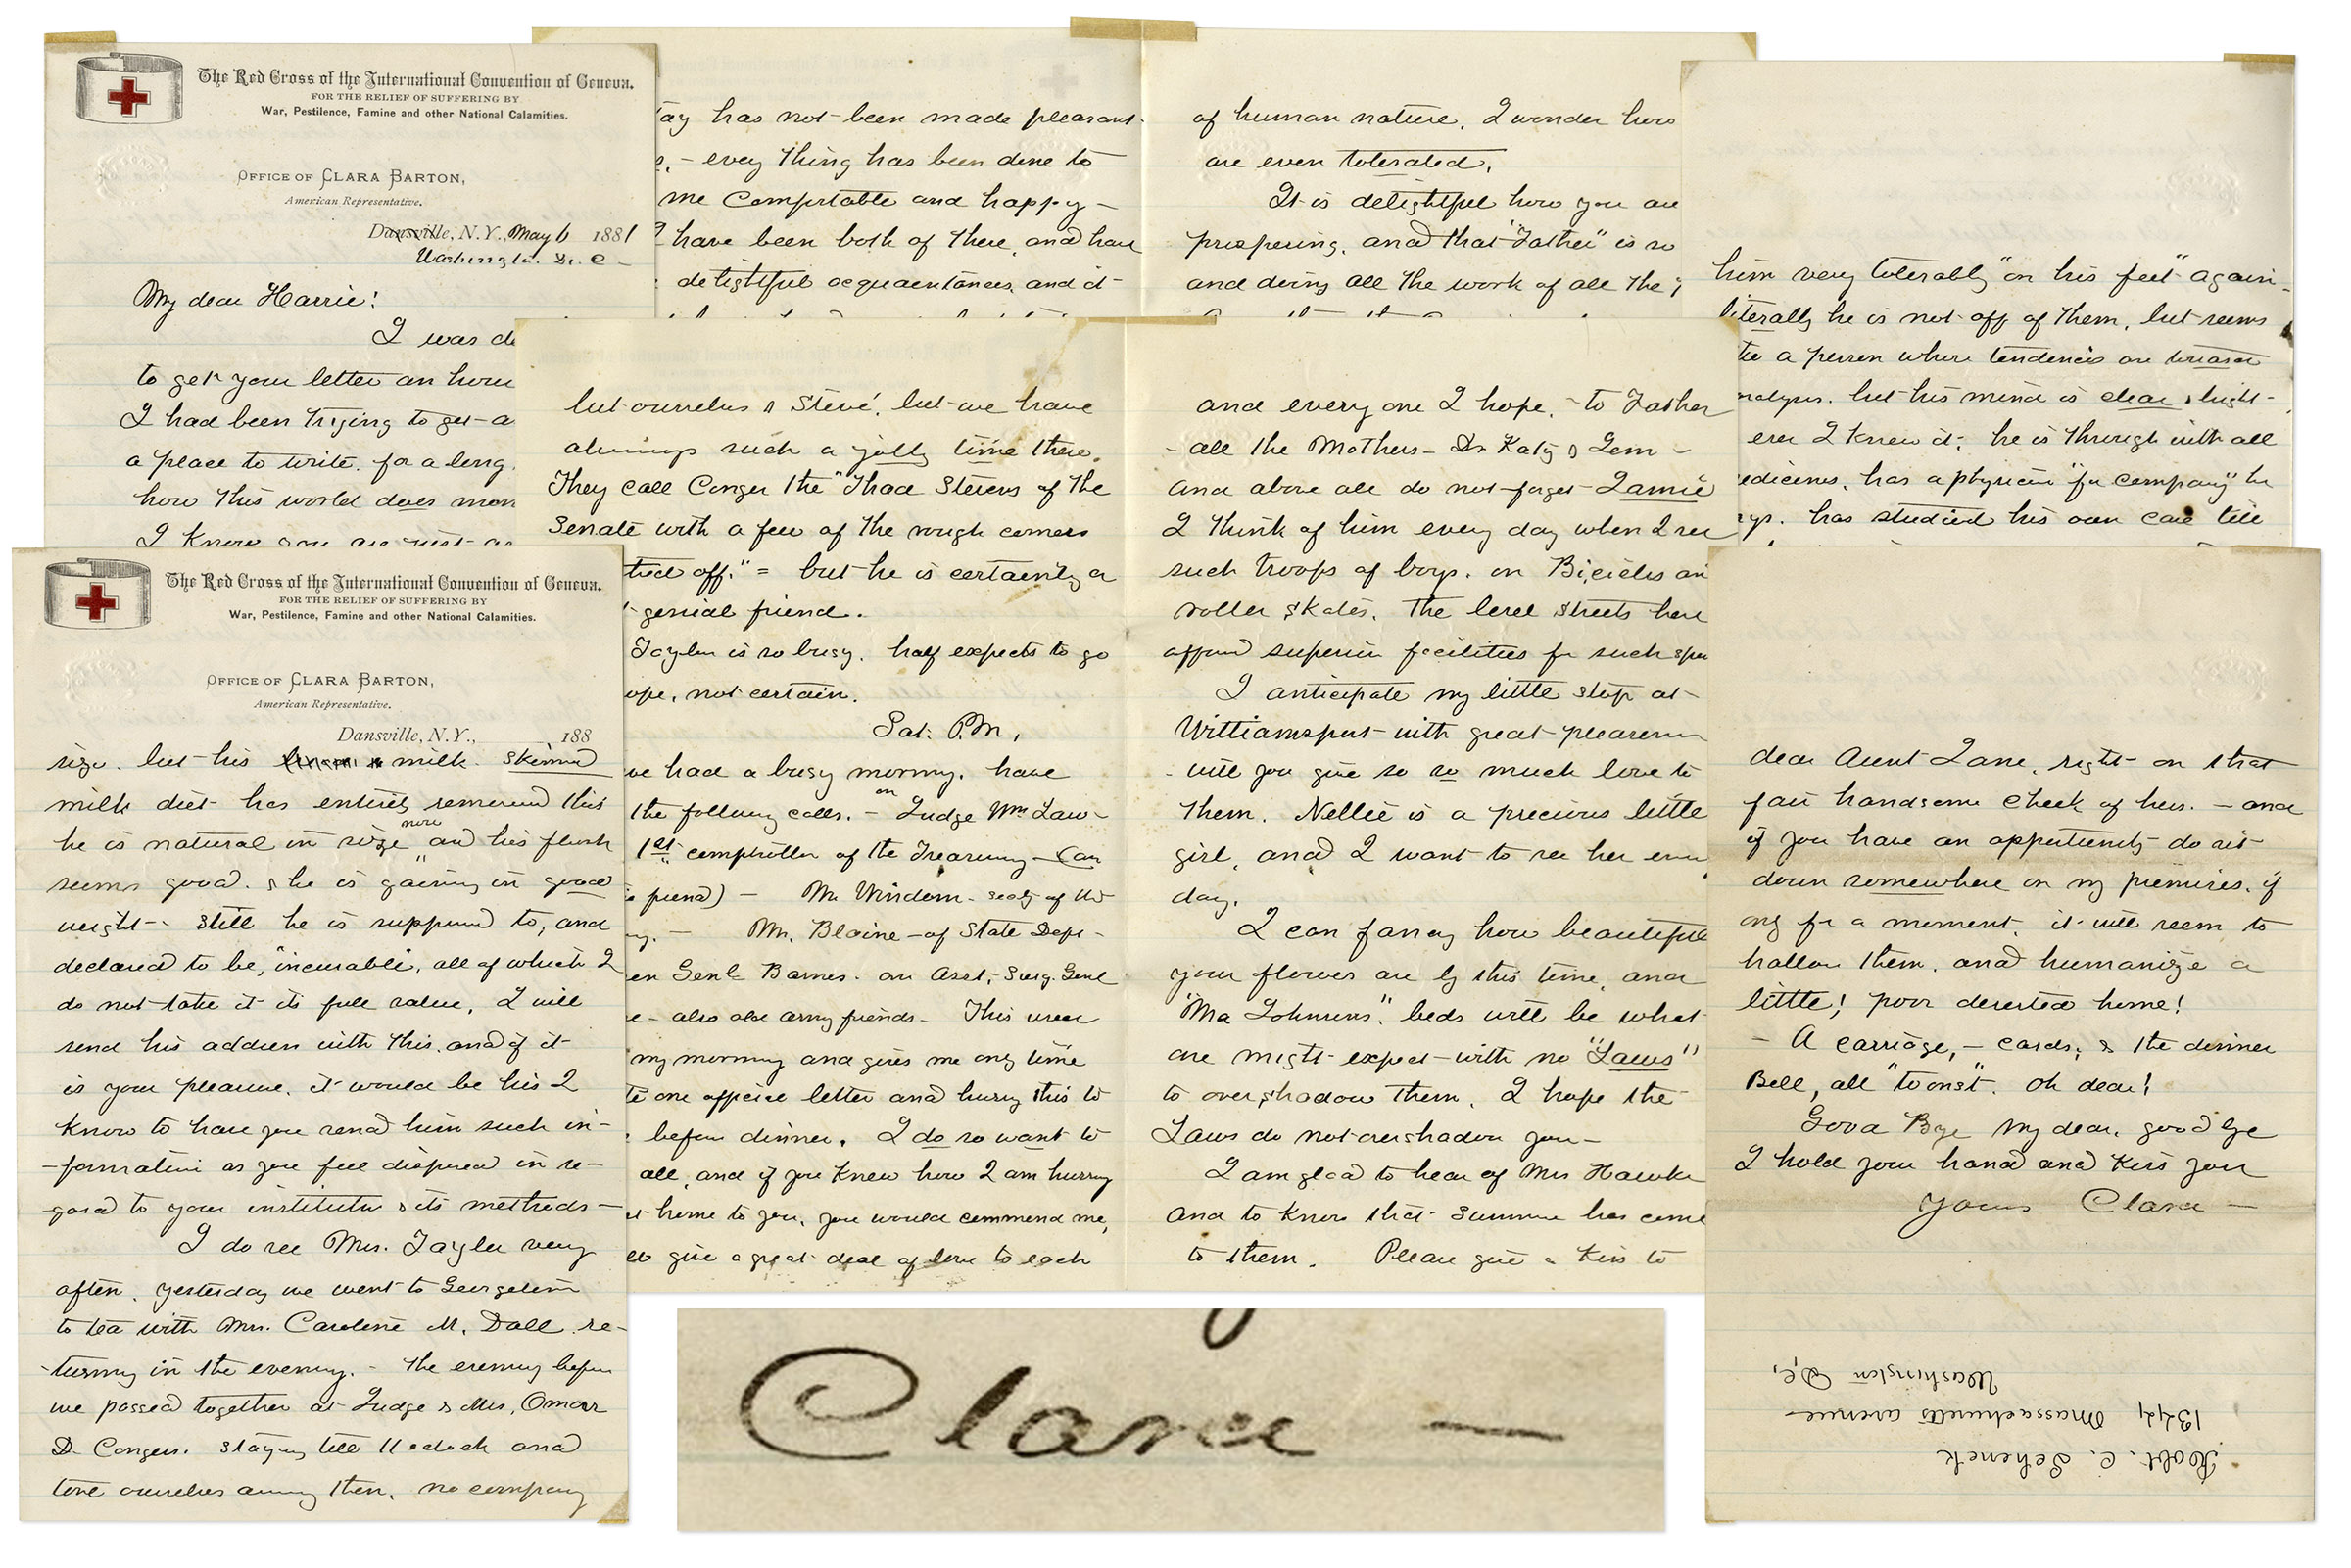 The Red Cross of the International Convention of Geneva.
FOR THE RELIEF OF SUFFERING BY
War, Pestilence, Famine and other National Calamities.
OFFICE OF CLARA BARTON,
American Representative.
Dansville, N.Y., May 6 1881
Washington. D. C —
My dear Harrie!
I was de
to get your letter an hour
I had been trying to get a
a place to write. for a long
how this world does mon
I know you are just as
ay has not been made pleasant
– every thing has been done to
me comfortable and happy –
have been both of these, and have
delightful acquaintances, and it
of human nature. I wonder how
are even tolerated.
It is delightful how you are
prospering, and that "Father" is so
and doing all the work of all the
him very tolerably "on his feet" again –
literally he is not off of them, but seems
a person whose tendencies are
but his mind is clear & bright –
ever I knew it; he is through with all
edicines, has a physician "for company" he
has studied his own case till
but ourselves & Steve', but we have
always such a jolly time there.
They call Conger the "Thad Stevens of the
Senate with a few of the rough corners
off." = but he is certainly a
genial friend.
Tayler is so busy. half expects to go
ope, not certain.
Sat. P.M.,
ve had a busy morning. have
the following calls. – on Judge Wm Law-
1st comptroller of the Treasury – (an
friend) – Mr Windom – secty of the
ry. – Mr. Blaine – of State Dept –
en Genl Barnes. an Asst, Surg. Genl
e – also old army friends – This uses
my morning and gives me only time
te one official letter and hurry this to
before dinner. I do so want to
all, and if you knew how I am hurry
home to you, you would commend me,
give a great deal of love to each
and every one I hope, – to Father
– all the Mothers – Dr Katy & Gem –
and above all do not forget Jamie
I think of him every day when I see
such troops of boys. on Bicicles an
roller skates. The level streets here
afford superior facilities for such spor
I anticipate my little stop at
Williamsport with great pleasure
will you give so so much love to
them. Nellie is a precious little
girl, and I want to see her every
day.
I can fancy how beautiful
your flowers are by this time, and
"Ma Johnsons". beds will be what
one might expect with no "Jaws"
to overshadow them. I hope the
Jaws do not overshadow you –
I am glad to hear of Mrs Hawke
and to know that summer has come
to them. Please give a kiss to
The Red Cross of the International Convention of Geneva.
FOR THE RELIEF OF SUFFERING BY
War, Pestilence, Famine and other National Calamities.
OFFICE OF CLARA BARTON,
American Representative.
Dansville, N.Y., 188
size. but his milk. skimmed
milk diet has entirely removed this
he is natural in size now and his flesh
seems good. & he is gaining in good
weight – still he is supposed to, and
declared to be, "incurable", all of which I
do not take at its full value. I will
send his address with this. and if it
is your pleasure. it would be his I
know to have you send him such in-
-formation as you feel disposed in re-
gard to your institution & its methods –
I do see Mrs. Tayler very
often. yesterday we went to Georgetown
to tea with Mrs. Caroline M. Dall re-
-turning in the evening. – The evening before
we passed together at Judge & Mrs, Omar
D. Congers. staying till 11 oclock and
ourselves among them, no company
dear Aunt Jane, right on that
fair handsome cheek of hers. – and
if you have an opportunity do sit
down somewhere on my premises. if
only for a moment, it will seem to
hallow them, and humanize a
little! poor deserted home!
– A carriage, – cards, & the dinner
Bell, all "to onst". Oh dear!
Good Bye My dear, good bye
I hold your hand and kiss you
Yours Clara –
Robt. C. Schenck
1344 Massachusetts avenue
Washington D.C.
Clara –